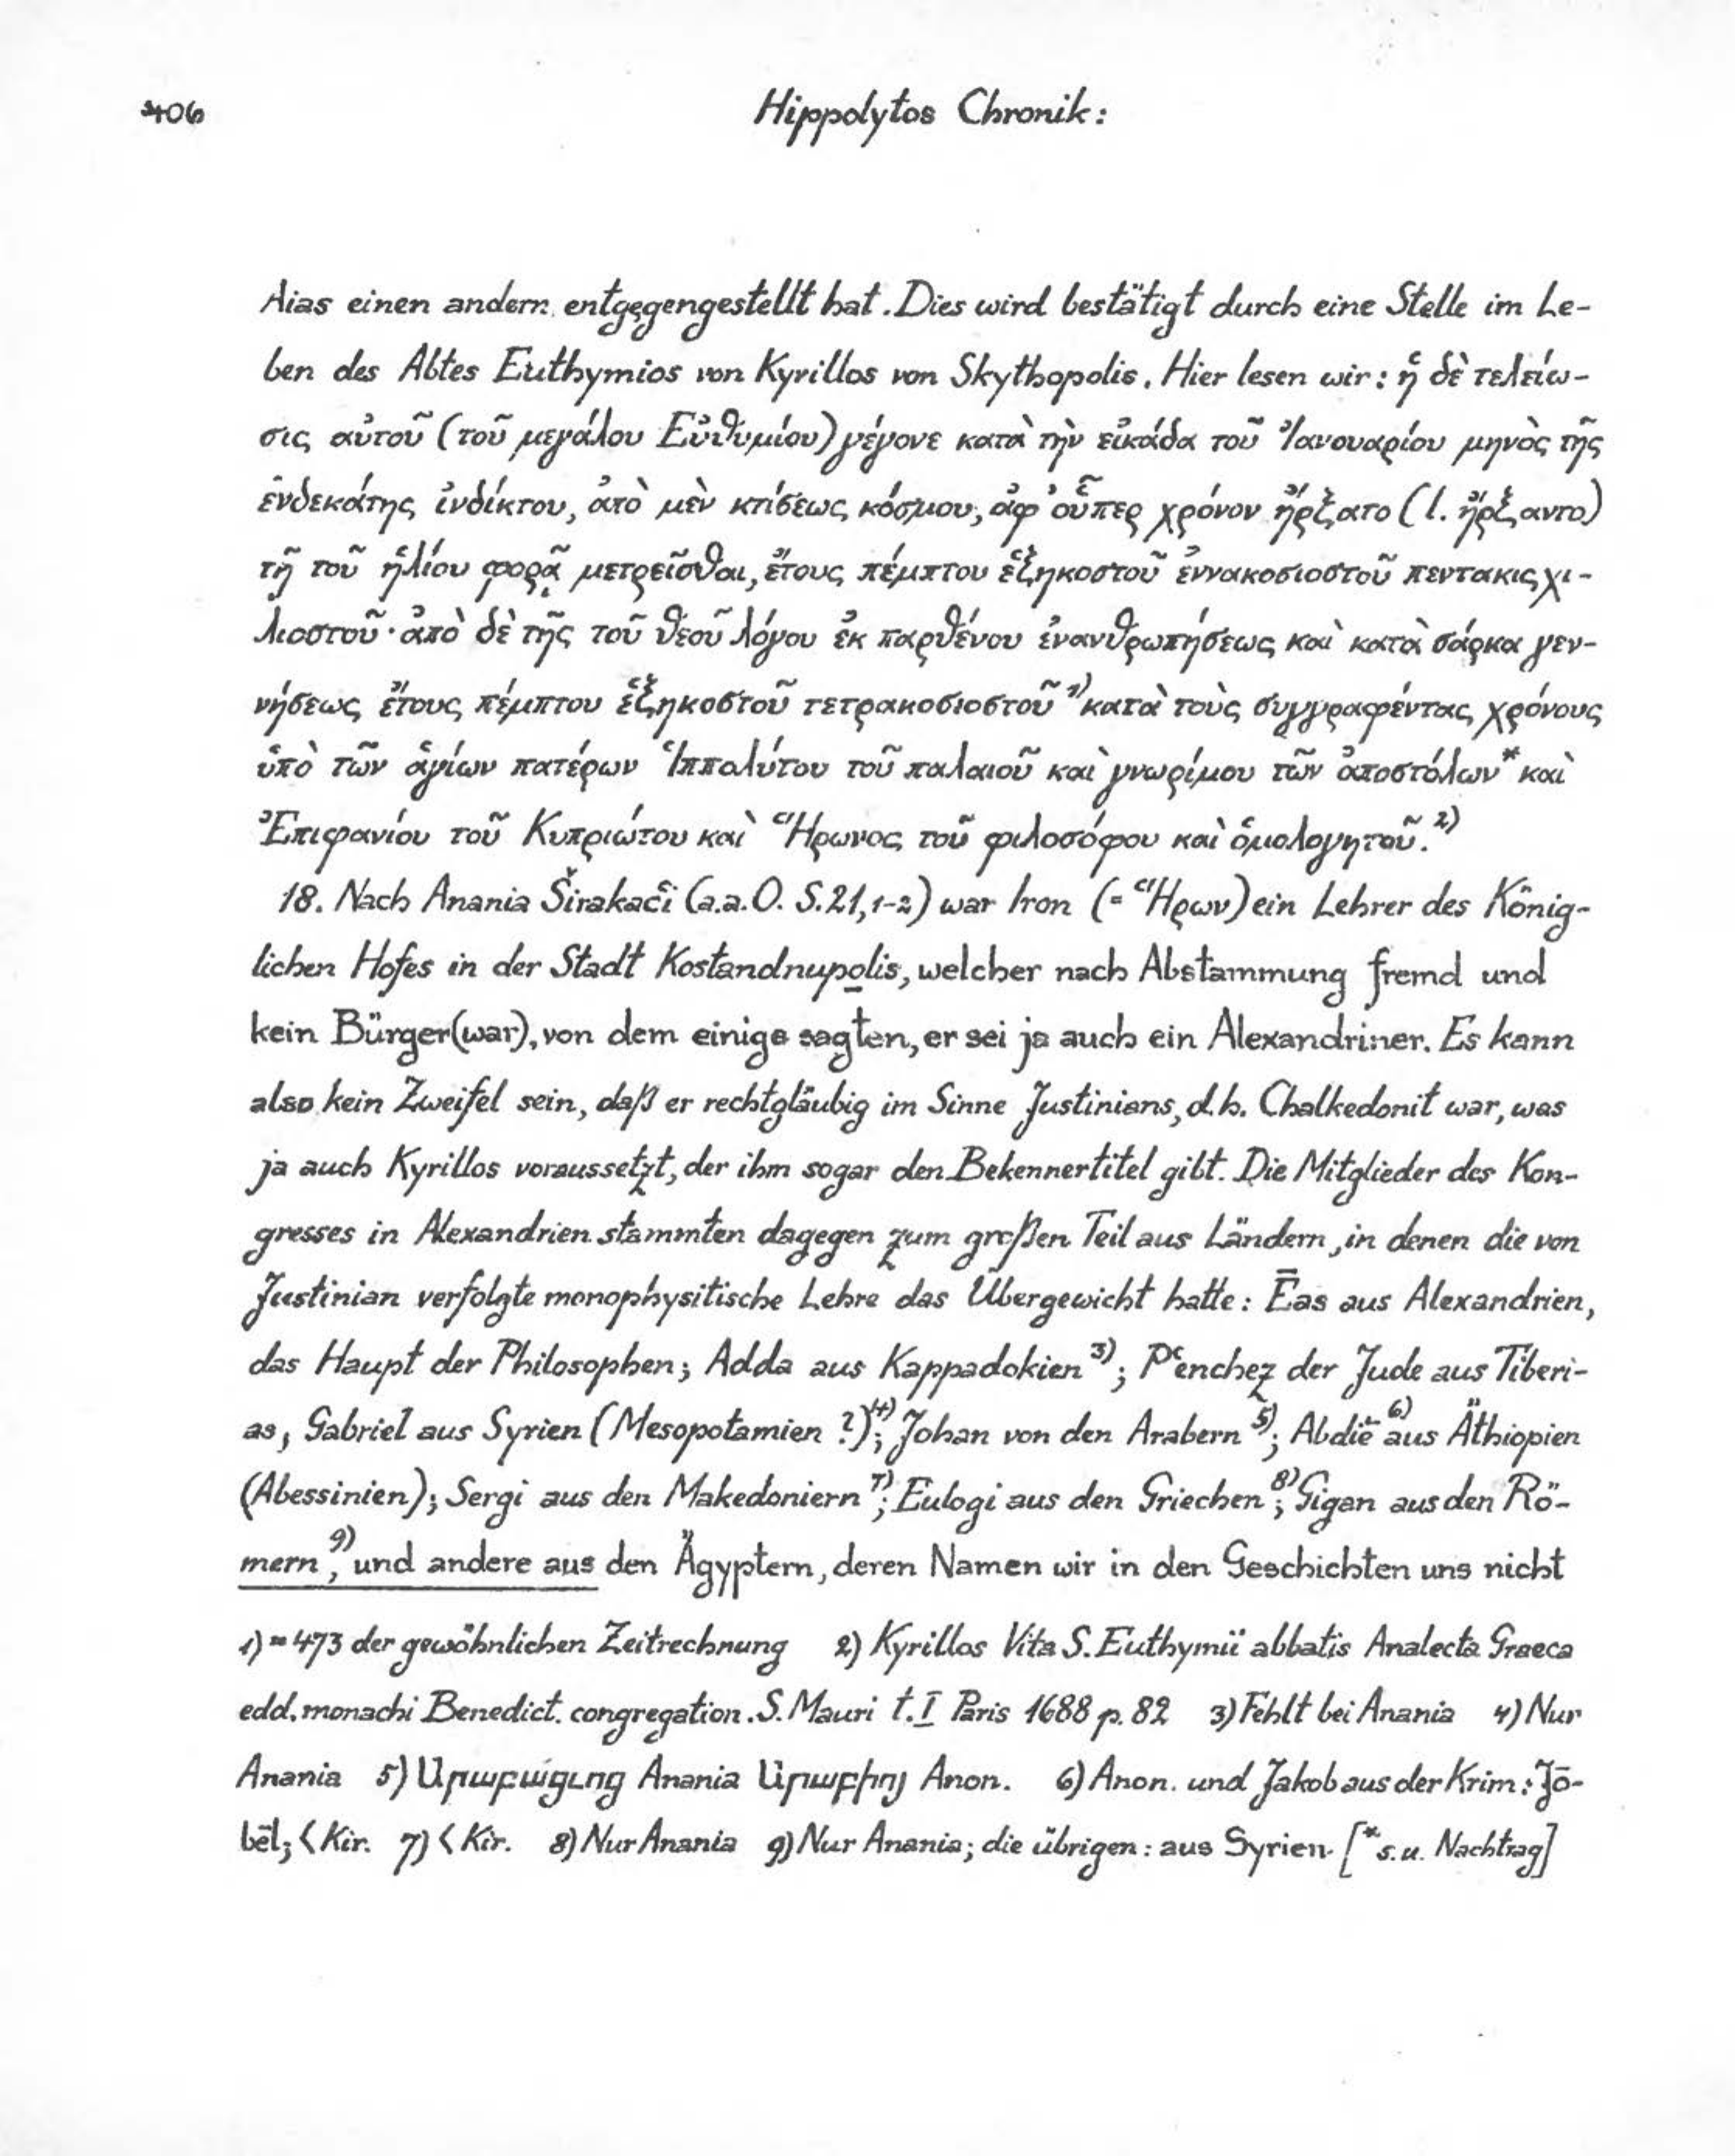 406
Hippolytos Chronik:
Aias einen andern entgegengestellt hat. Dies wird bestätigt durch eine Stelle im Le-
ben des Abtes Euthymios von Kyrillos von Skythopolis. Hier lesen wir: ἡ δὲ τελείω-
σις αὐτοῦ (τοῦ μεγάλου Εὐθυμίου) γέγονε κατὰ τὴν εἰκάδα τοῦ Ἰανουαρίου μηνὸς τῆς
ἑνδεκάτης ἰνδίκτου, ἀπὸ μὲν κτίσεως κόσμου, ἀφ' οὗπερ χρόνον ἤρξατο (l. ἤρξαντο)
τῇ τοῦ ἡλίου φορᾷ μετρεῖσθαι, ἔτους πέμπτου ἑξηκοστοῦ ἐννακοσιοστοῦ πεντακισχι-
λιοστοῦ· ἀπὸ δὲ τῆς τοῦ θεοῦ λόγου ἐκ παρθένου ἐνανθρωπήσεως καὶ κατὰ σάρκα γεν-
νήσεως ἔτους πέμπτου ἑξηκοστοῦ τετρακοσιοστοῦ 1) κατὰ τοὺς συγγραφέντας χρόνους
ὑπὸ τῶν ἁγίων πατέρων Ἱππολύτου τοῦ παλαιοῦ καὶ γνωρίμου τῶν ἀποστόλων* καὶ
Ἐπιφανίου τοῦ Κυπριώτου καὶ Ἥρωνος τοῦ φιλοσόφου καὶ ὁμολογητοῦ. 2)
18. Nach Anania Širakac̣i (a.a.O. S.21,1-2) war Iron (= Ἥρων) ein Lehrer des König-
lichen Hofes in der Stadt Kostandnupolis, welcher nach Abstammung fremd und
kein Bürger (war), von dem einige sagten, er sei ja auch ein Alexandriner. Es kann
also kein Zweifel sein, daß er rechtgläubig im Sinne Justinians, d.h. Chalkedonit war, was
ja auch Kyrillos voraussetzt, der ihm sogar den Bekennertitel gibt. Die Mitglieder des Kon-
gresses in Alexandrien stammten dagegen zum großen Teil aus Ländern, in denen die von
Justinian verfolgte monophysitische Lehre das Übergewicht hatte: Ēas aus Alexandrien,
das Haupt der Philosophen; Adda aus Kappadokien 3); Pʿenchez der Jude aus Tiberi-
as, Gabriel aus Syrien (Mesopotamien ?) 4); Johan von den Arabern 5); Abdiē 6) aus Äthiopien
(Abessinien); Sergi aus den Makedoniern 7); Eulogi aus den Griechen 8); Gigan aus den Rö-
mern 9), und andere aus den Ägyptern, deren Namen wir in den Geschichten uns nicht
1) = 473 der gewöhnlichen Zeitrechnung 2) Kyrillos Vita S. Euthymii abbatis Analecta Graeca
edd. monachi Benedict. congregation. S. Mauri t. I Paris 1688 p. 82 3) Fehlt bei Anania 4) Nur
Anania 5) Արաբացւոց Anania Արաբիոյ Anon. 6) Anon. und Jakob aus der Krim: Jō-
bēl; < Kir. 7) < Kir. 8) Nur Anania 9) Nur Anania; die übrigen: aus Syrien [* s.u. Nachtrag]